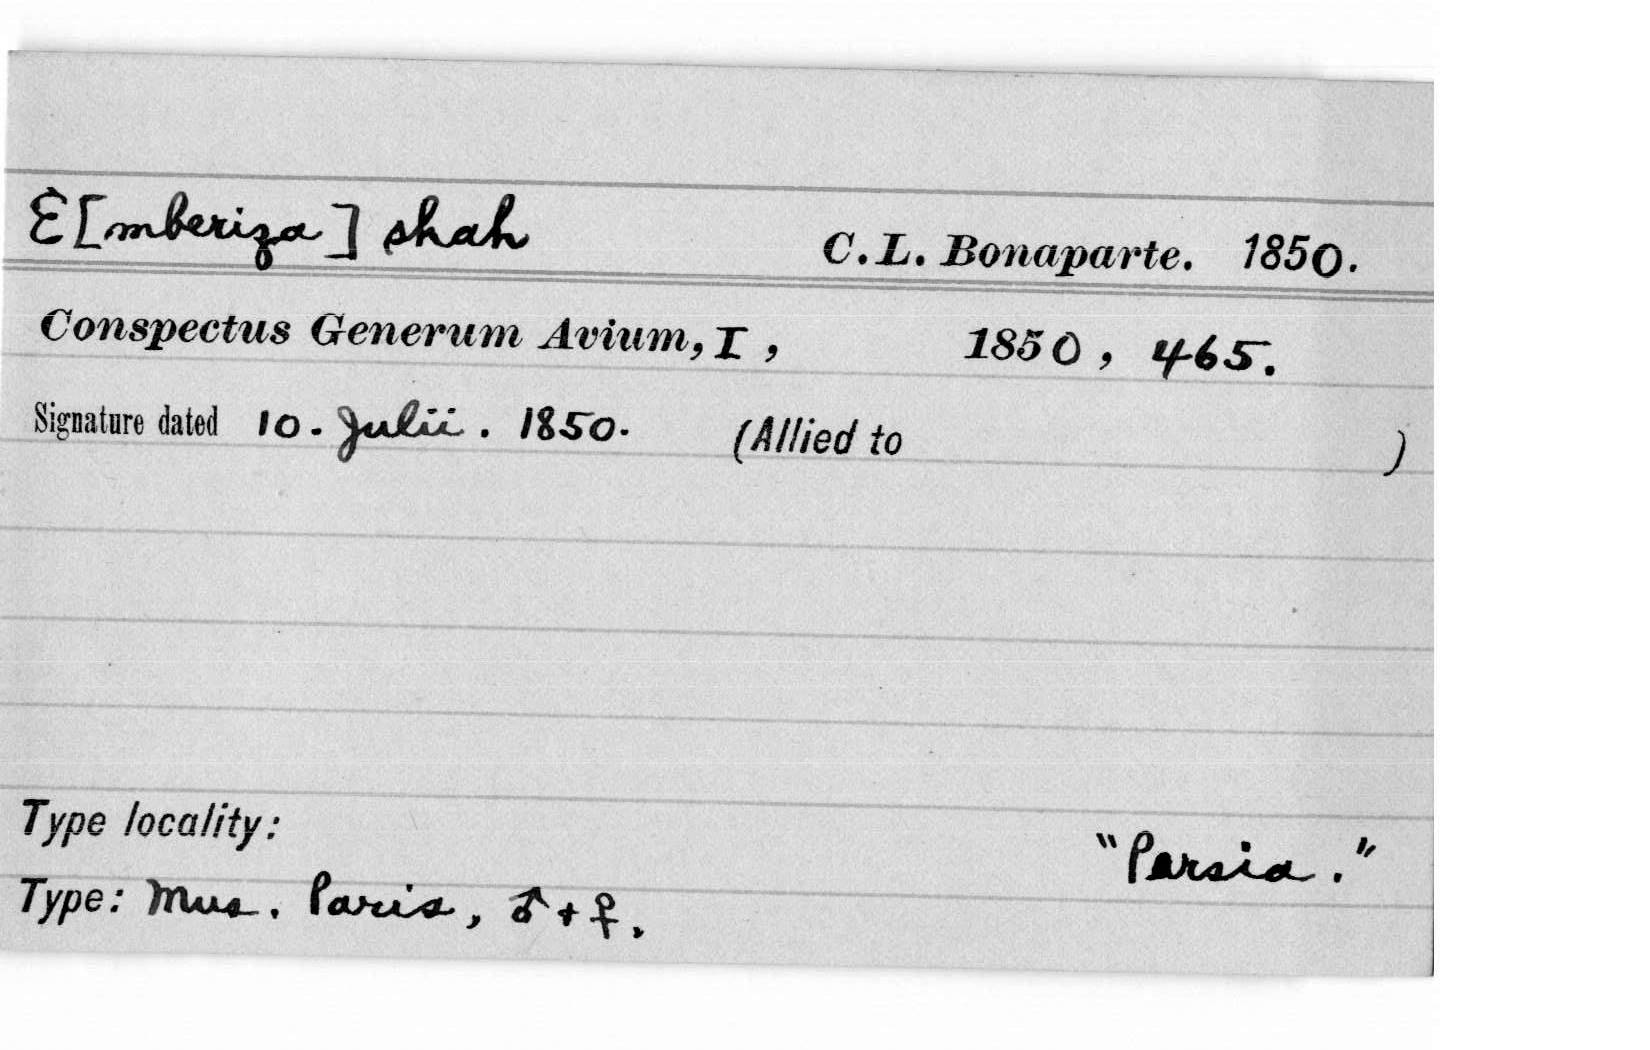 E[mberiza] shah C. L. Bonaparte. 1850.
Conspectus Generum Avium, I, 1850, 465.
Signature dated 10. Julii. 1850. (Allied to )
Type locality: "Persia."
Type: Mus. Paris, ♂ + ♀.